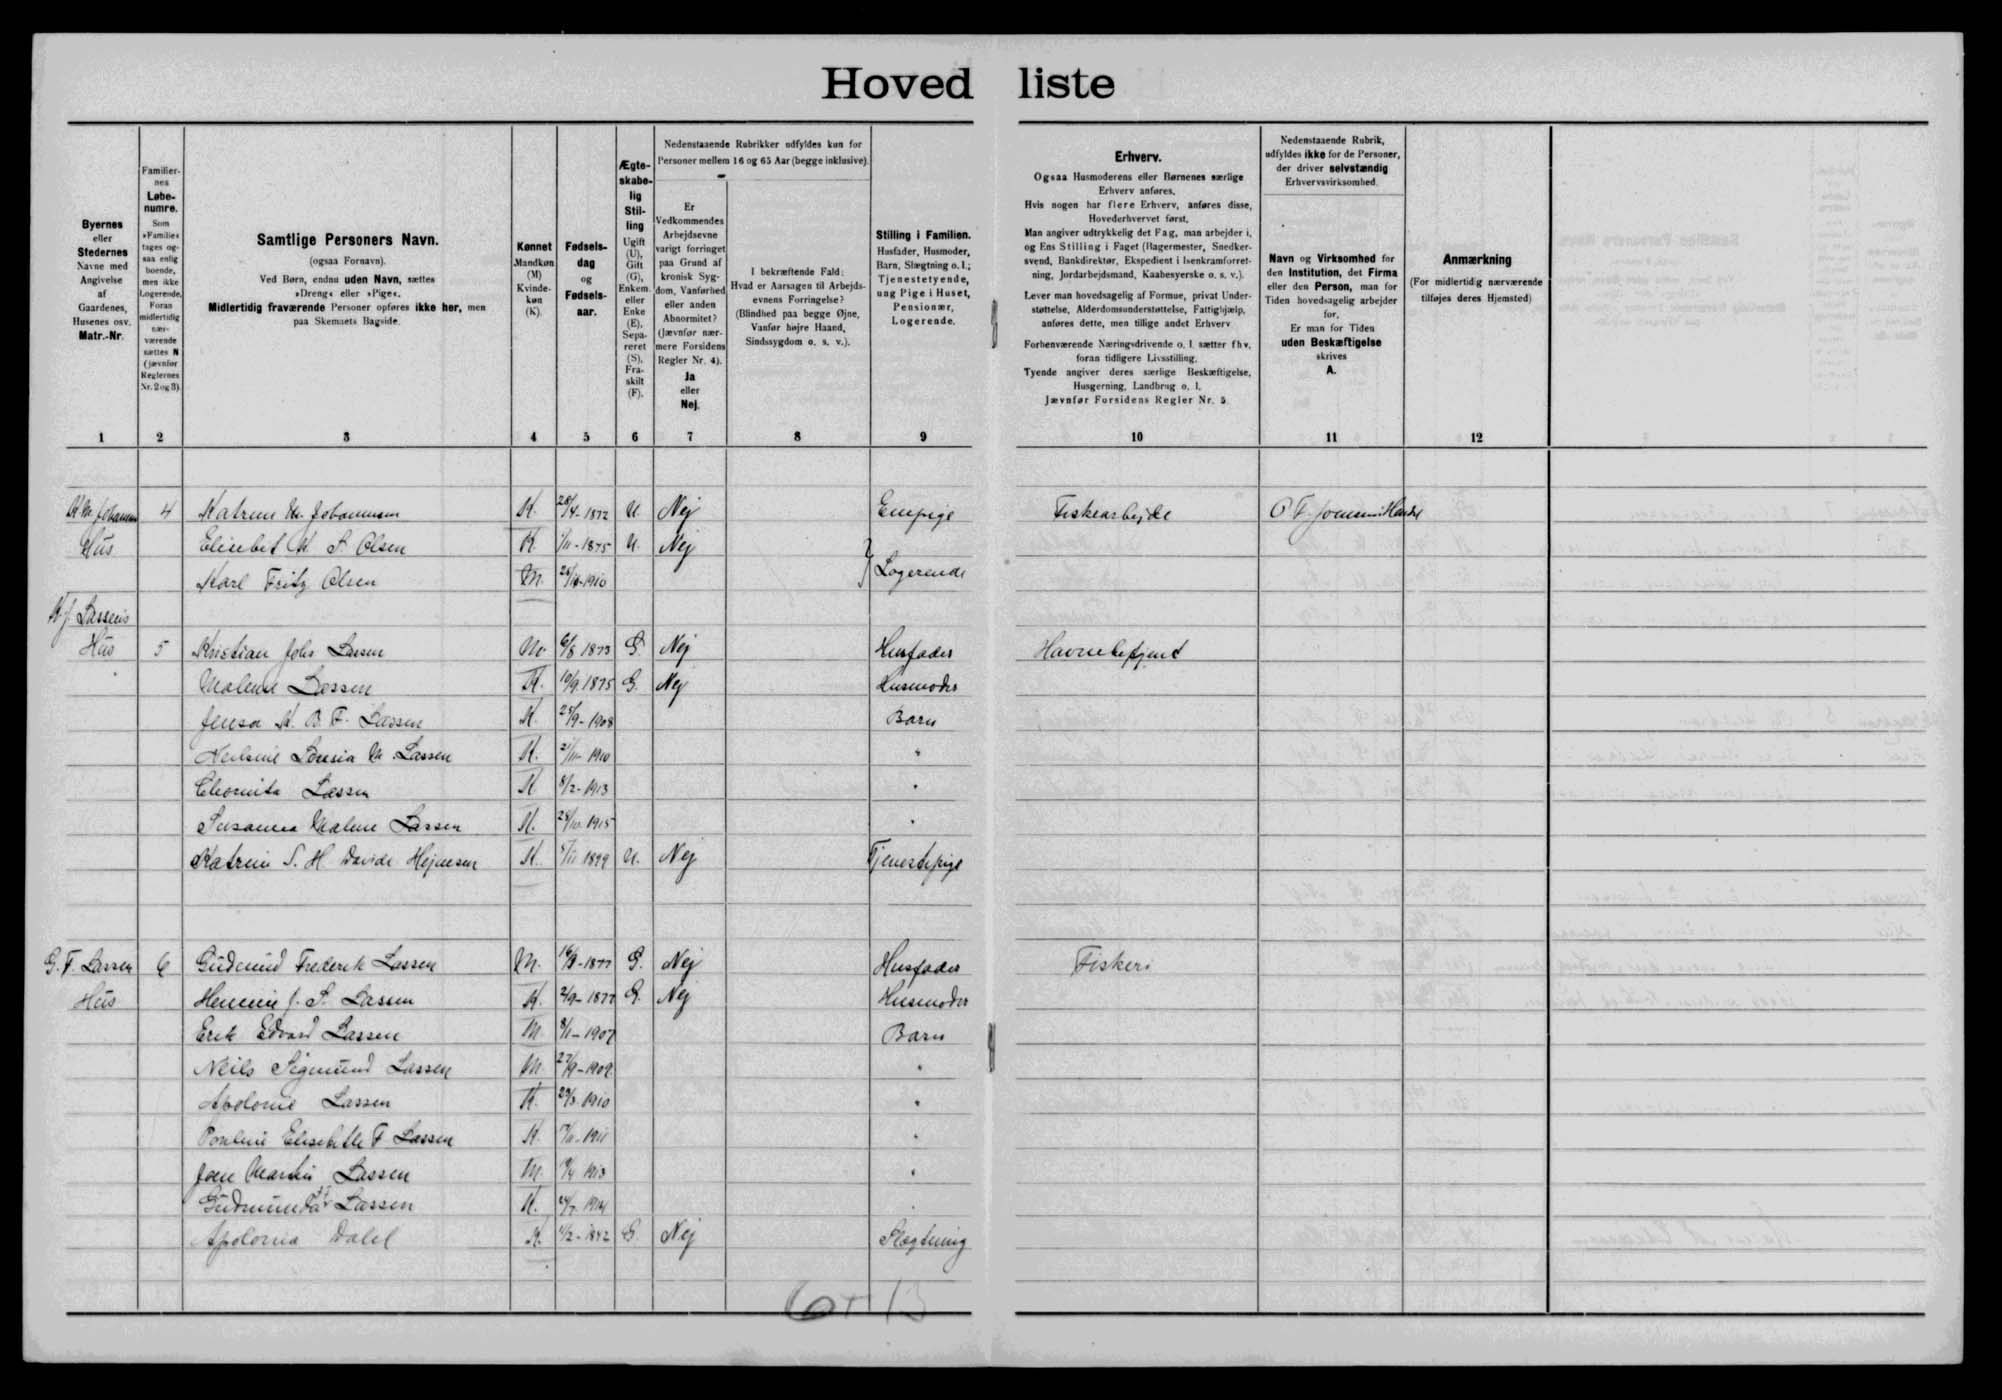 Hovedliste
Byernes eller Stedernes Navne med Angivelse af Gaardenes, Husenes osv. Matr.-Nr.
Familiernes Løbenumre. Som »Familie« tages ogsaa enlig boende, men ikke Logerende. Foran midlertidig nærværende sættes N (jævnfør Reglernes Nr. 2 og 3).
Samtlige Personers Navn.
(ogsaa Fornavn).
Ved Børn, endnu uden Navn, sættes
»Dreng« eller »Pige«.
Midlertidig fraværende Personer opføres ikke her, men
paa Skemaets Bagside.
Kønnet Mandkøn (M) Kvindekøn (K).
Fødselsdag og Fødselsaar.
Ægteskabelig Stilling Ugift (U), Gift (G), Enkem. eller Enke (E), Separeret (S), Fraskilt (F).
Nedenstaaende Rubrikker udfyldes kun for
Personer mellem 16 og 65 Aar (begge inklusive).
Er Vedkommendes Arbejdsevne varigt forringet paa Grund af kronisk Sygdom, Vanførhed eller anden Abnormitet? (Jævnfør nærmere Forsidens Regler Nr. 4). Ja eller Nej.
I bekræftende Fald: Hvad er Aarsagen til Arbejdsevnens Forringelse? (Blindhed paa begge Øjne, Vanfør højre Haand, Sindssygdom o. s. v.).
Stilling i Familien. Husfader, Husmoder, Barn, Slægtning o. l.; Tjenestetyende, ung Pige i Huset, Pensionær, Logerende.
Erhverv.
Ogsaa Husmoderens eller Børnenes særlige
Erhverv anføres.
Hvis nogen har flere Erhverv, anføres disse,
Hovederhvervet først.
Man angiver udtrykkelig det Fag, man arbejder i,
og Ens Stilling i Faget (Bagermester, Snedkersvend, Bankdirektør, Ekspedient i Isenkramforretning, Jordarbejdsmand, Kaabesyerske o. s. v.).
Lever man hovedsagelig af Formue, privat Understøttelse, Alderdomsunderstøttelse, Fattighjælp,
anføres dette, men tillige andet Erhverv
Forhenværende Næringsdrivende o. l. sætter fhv.
foran tidligere Livsstilling.
Tyende angiver deres særlige Beskæftigelse,
Husgerning, Landbrug o. l.
Jævnfør Forsidens Regler Nr. 5
Nedenstaaende Rubrik, udfyldes ikke for de Personer, der driver selvstændig Erhvervsvirksomhed.
Navn og Virksomhed for den Institution, det Firma eller den Person, man for Tiden hovedsagelig arbejder for.
Er man for Tiden uden Beskæftigelse skrives A.
Anmærkning
(For midlertidig nærværende tilføjes deres Hjemsted)
1 2 3 4 5 6 7 8 9 10 11 12
4 Katrine M. Johannesen K. 28/4-1872 U. Nej Enepige Fiskearbejde
Hus Elisebet M. S. Olsen K. U. Nej
Karl Fritz Olsen M. Logerende
K J. Lassens
Hus 5 Kristian Johs Lassen M. 6/8 1873 G. Nej Husfader Havnebetjent
Malene Lassen K. 10/9 1875 G. Nej Husmoder
Jensa K. B. F. Lassen K. 25/9-1908 Barn
Lassen K. 21/11-1910 "
Lassen K 8/2-1913 "
Susanna Malene Lassen K. "
Katrine S. H. Davide Hejnesen K. U. Nej Tjenestepige
G. F. Lassen 6 Gudmund Frederik Lassen M. G. Nej Husfader Fiskeri
Hus Hennie J. S. Lassen K. 2/9-1877 G. Nej Husmoder
Erik Edvard Lassen M 8/11-1907 Barn
Neils Sigmund Lassen M. 27/9-1909 "
Apolonie Lassen K. "
Pouline Elisebeth F Lassen K. "
Joen Martin Lassen M. "
Gudmunda Lassen K.
Apolonia Dalel K. G. Nej Slægtning
6 + 13